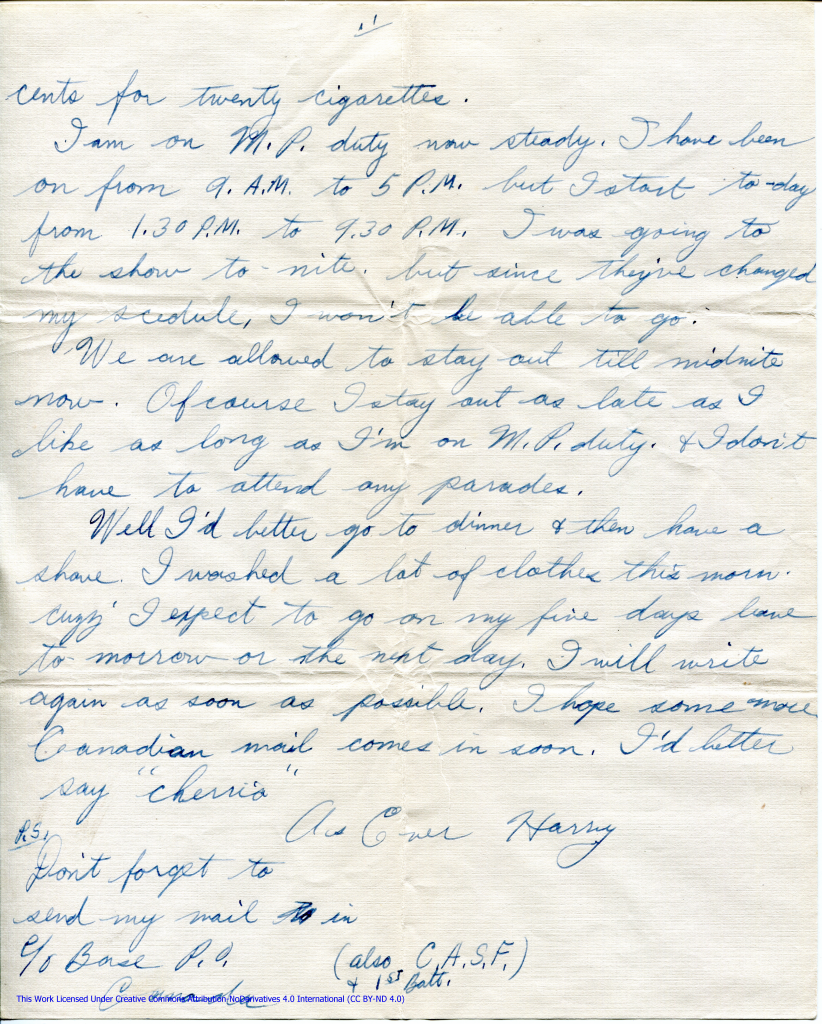 11
cents for twenty cigarettes.
I am on M.P. duty now steady. I have been
on from 9. A.M. to 5 P.M. but I start to-day
from 1.30 P.M. to 9.30 P.M. I was going to
the show to-nite. but since they've changed
my scedule, I won't be able to go.
We are allowed to stay out till midnite
now. Ofcourse I stay out as late as I
like as long as I'm on M.P. duty. & I don't
have to attend any parades.
Well I'd better go to dinner & then have a
shave. I washed a lot of clothes this morn.
cuzz I expect to go on my five days leave
to-morrow or the next day. I will write
again as soon as possible. I hope some more
Canadian mail comes in soon. I'd better
say "cherrio"
As Ever Harry
P.S.
Don't forget to
send my mail in
c/o Base P.O. (also C.A.S.F.)
& 1st Batt.
Canada
This Work Licensed Under Creative Commons Attribution-NoDerivatives 4.0 International (CC BY-ND 4.0)